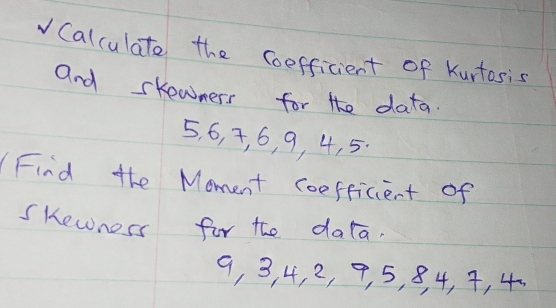 ✓ Calculate the Coefficient of Kurtosis
and skewness for the data.
5,6,7,6,9, 4,5.
Find the Moment Coefficient of
Skewness for the data.
9, 3,4,2, 9,5,8,4, 7, 4.